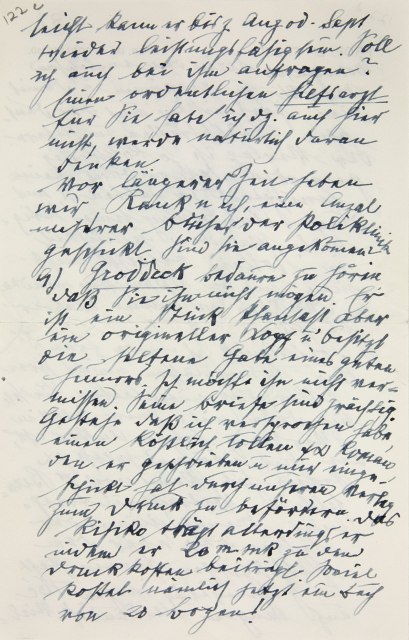 122c
leicht kann er bis z Aug od. Sept
wieder leistungsfähig sein. Soll
ich auch bei ihm anfragen?
Einen ordentlichen Hilfsarzt
für Sie habe ich dz. auch hier
nicht, werde natürlich daran
denken
Vor längerer Zeit haben
wir Rank u ich, eine Anzal
unserer Bücher der Poliklinik
geschickt. Sind sie angekommen?
4) Groddeck bedaure zu hören
daß Sie ihn nicht mögen. Er
ist ein Stück Phantast aber
ein origineller Kopf u' besitzt
die seltene Gabe eines guten
Humors. Ich möchte ihn nicht ver-
missen. Seine Briefe sind prächtig.
Gestehe daß ich versprochen habe
einen köstlich tollen Roman
den er geschrieben u mir einge-
schickt hat durch unseren Verlag
zum Druck zu befördern. Das
Risiko trägt allerdings er
indem er zu den
Druckkosten beiträgt. Soviel
kostet nämlich jetzt ein Buch
von 20 Bogen!